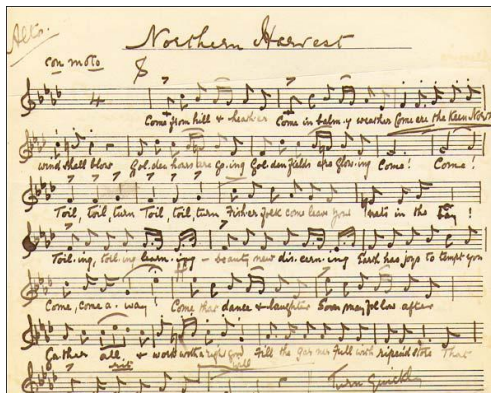 Alto.
Northern Harvest
con moto
Come from hill & heather Come in balm-y weather Come ere the Keen North
wind shall blow Gol-den hours are go-ing Gol-den fields are glow-ing Come! Come!
Toil, toil, turn Toil, toil, turn Fisher folk come leave your nets in the bay!
Toil-ing, toil-ing learn-ing - beauty new dis-cern-ing Earth has joys to tempt you
Come, come a-way! Come there dance & laughter Soon may follow after
Gather all, & work with a right good will Fill the garner full with ripened store That
rit
Turn Quickly